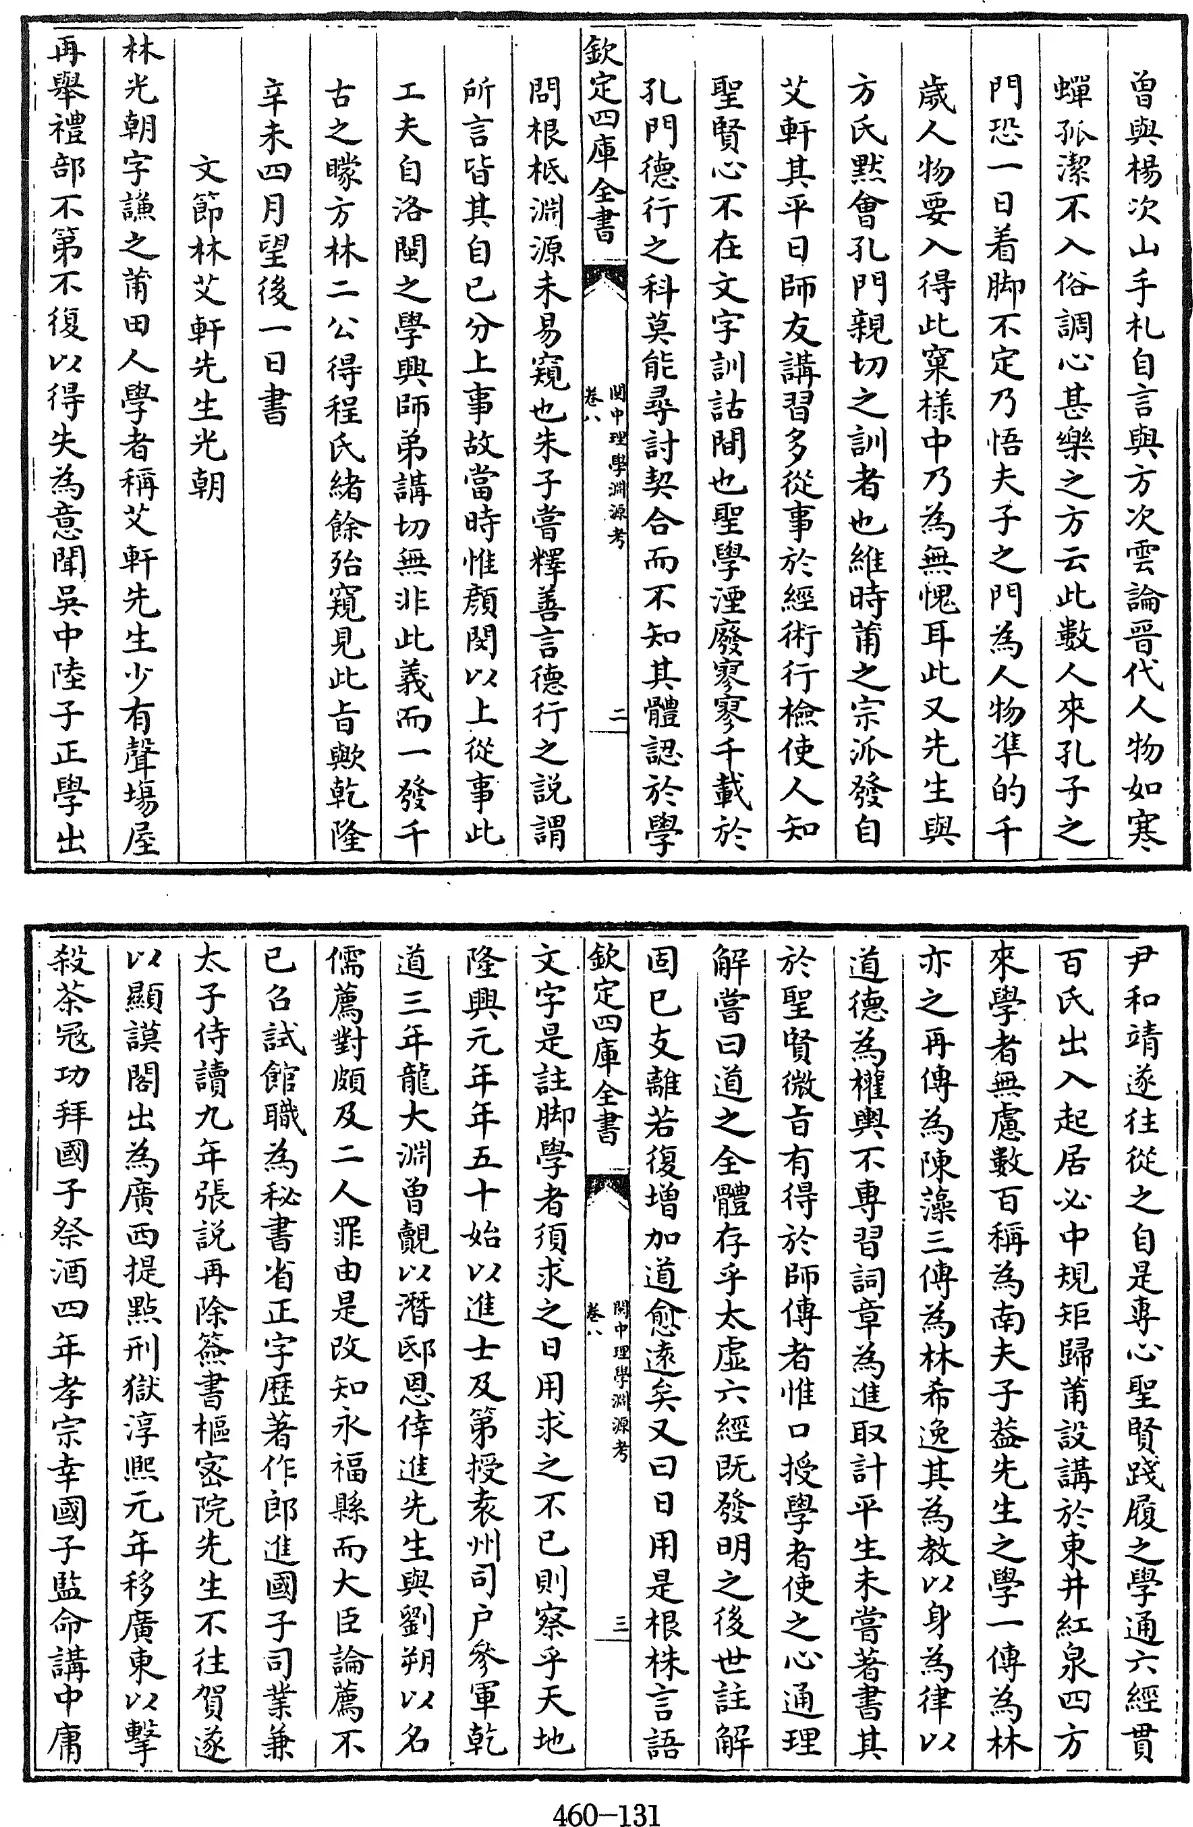 曾與楊次山手札自言與方次雲論晉代人物如寒
蟬孤潔不入俗調心甚樂之方云此數人來孔子之
門恐一日着脚不定乃悟夫子之門為人物準的千
歲人物要入得此窠様中乃為無愧耳此又先生與
方氏黙會孔門親切之訓者也維時莆之宗派發自
艾軒其平日師友講習多從事於經術行檢使人知
聖賢心不在文字訓詁間也聖學湮廢寥寥千載於
孔門德行之科莫能尋討契合而不知其體認於學
欽定四庫全書
閩中理學淵源考
卷八
二
問根柢淵源未易窺也朱子嘗釋善言德行之説謂
所言皆其自己分上事故當時惟顔閔以上從事此
工夫自洛閩之學興師弟講切無非此義而一發千
古之矇方林二公得程氏緒餘殆窺見此旨歟乾隆
辛未四月望後一日書
文節林艾軒先生光朝
林光朝字謙之莆田人學者稱艾軒先生少有聲塲屋
再舉禮部不第不復以得失為意聞吳中陸子正學出
尹和靖遂往從之自是専心聖賢踐履之學通六經貫
百氏出入起居必中規矩歸莆設講於東井紅泉四方
來學者無慮數百稱為南夫子葢先生之學一傳為林
亦之再傳為陳藻三傳為林希逸其為教以身為律以
道德為權輿不專習詞章為進取計平生未嘗著書其
於聖賢微旨有得於師傳者惟口授學者使之心通理
解嘗曰道之全體存乎太虛六經既發明之後世註解
固已支離若復增加道愈遠矣又曰日用是根株言語
欽定四庫全書
閩中理學淵源考
卷八
三
文字是註脚學者須求之日用求之不已則察乎天地
隆興元年年五十始以進士及第授袁州司户參軍乾
道三年龍大淵曾覿以潛邸恩倖進先生與劉朔以名
儒薦對頗及二人罪由是改知永福縣而大臣論薦不
已召試館職為秘書省正字歴著作郎進國子司業兼
太子侍讀九年張説再除簽書樞宻院先生不往賀遂
以顯謨閣出為廣西提點刑獄淳熙元年移廣東以擊
殺茶冦功拜國子祭酒四年孝宗幸國子監命講中庸
460-131